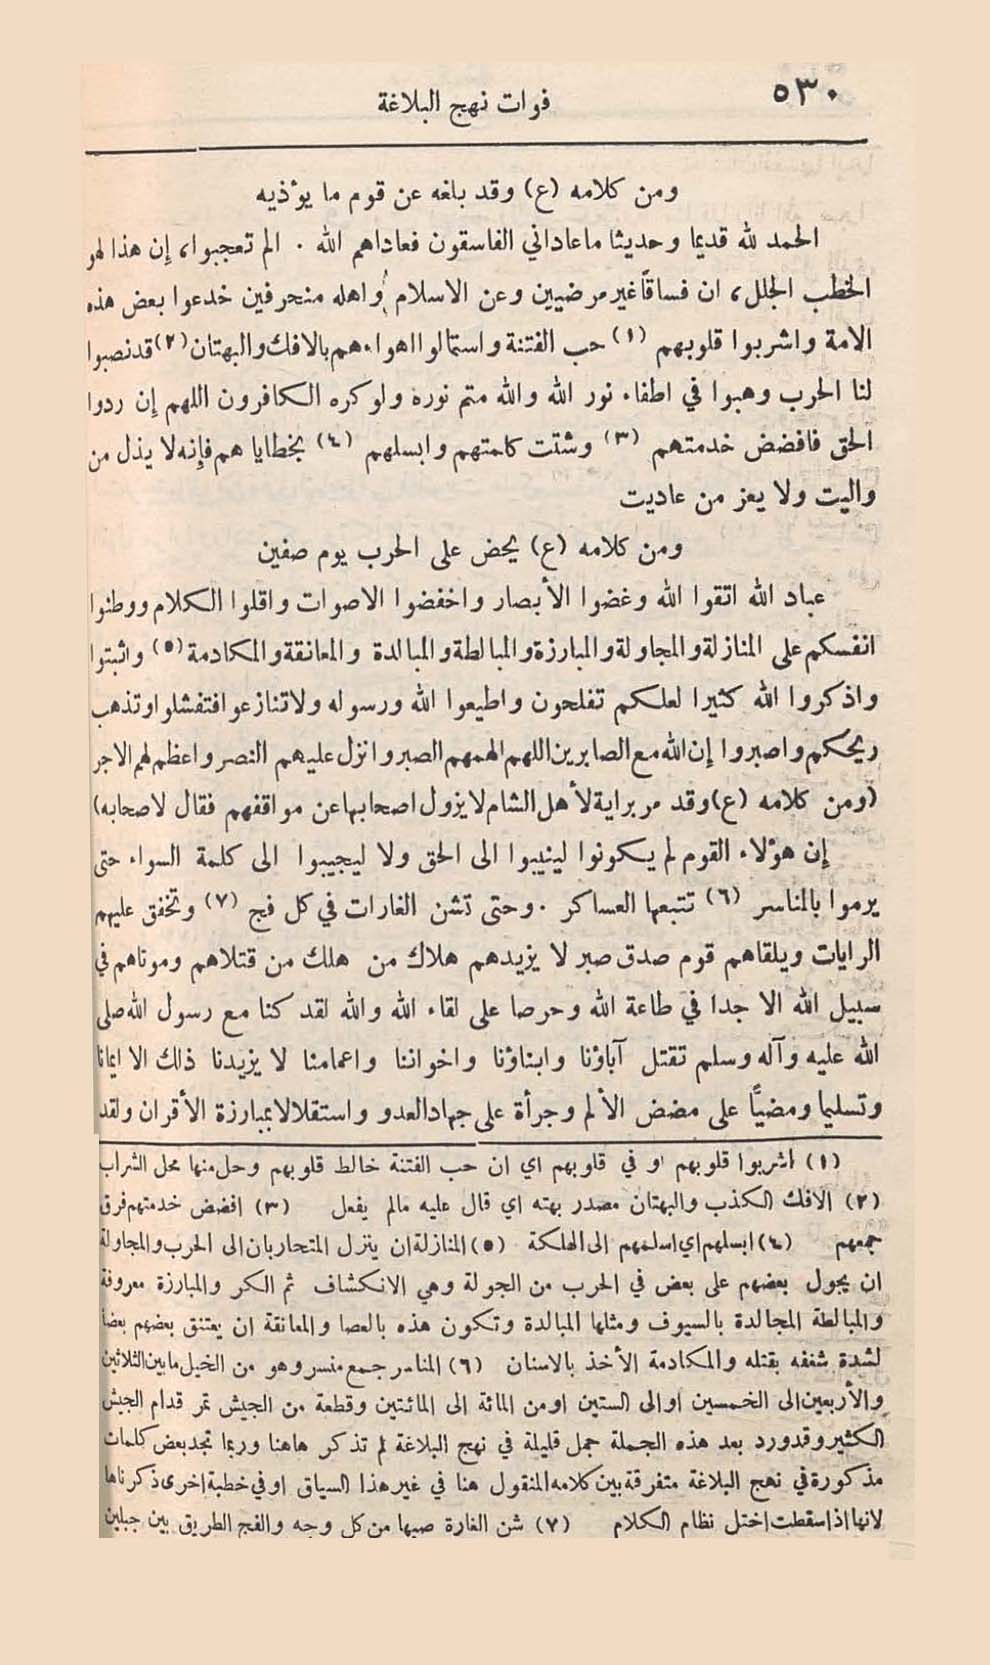 ٥٣٠
فوات نهج البلاغة
ومن كلامه (ع) وقد بلغه عن قوم ما يؤذيه
الحمد لله قديما وحديثا ما عاداني الفاسقون فعاداهم الله . الم تعجبوا، إن هذا لهو
الخطب الجلل، ان فساقاً غير مرضيين وعن الاسلام واهله منحرفين خدعوا بعض هذه
الامة واشربوا قلوبهم (١) حب الفتنة واستمالوا اهواءهم بالافك والبهتان (٢) قد نصبوا
لنا الحرب وهبوا في اطفاء نور الله والله متم نوره ولو كره الكافرون اللهم إن ردوا
الحق فافضض خدمتهم (٣) وشتت كلمتهم وابسلهم (٤) بخطاياهم فإنه لا يذل من
واليت ولا يعز من عاديت
ومن كلامه (ع) يحض على الحرب يوم صفين
عباد الله اتقوا الله وغضوا الأبصار واخفضوا الاصوات واقلوا الكلام ووطنوا
انفسكم على المنازلة والمجاولة والمبارزة والمبالطة والمبالدة والمعانقة والمكادمة (٥) واثبتوا
واذكروا الله كثيرا لعلكم تفلحون واطيعوا الله ورسوله ولا تنازعوا فتفشلوا وتذهب
ريحكم واصبروا إن الله مع الصابرين اللهم الهمهم الصبر وانزل عليهم النصر واعظم لهم الاجر
(ومن كلامه (ع) وقد مر براية لأهل الشام لا يزول اصحابها عن مواقفهم فقال لاصحابه)
إن هؤلاء القوم لم يكونوا لينيبوا الى الحق ولا ليجيبوا الى كلمة السواء حتى
يرموا بالمناسر (٦) تتبعها العساكر . وحتى تشن الغارات في كل فج (٧) وتخفق عليهم
الرايات ويلقاهم قوم صدق صبر لا يزيدهم هلاك من هلك من قتلاهم وموتاهم في
سبيل الله الا جدا في طاعة الله وحرصا على لقاء الله والله لقد كنا مع رسول الله صلى
الله عليه وآله وسلم تقتل آباؤنا وابناؤنا واخواننا واعمامنا لا يزيدنا ذلك الا ايمانا
وتسليما ومضيًّا على مضض الألم وجرأة على جهاد العدو واستقلالا بمبارزة الأقران ولقد
(١) اشربوا قلوبهم او في قلوبهم اي ان حب الفتنة خالط قلوبهم وحل منها محل الشراب
(٢) الافك الكذب والبهتان مصدر بهته اي قال عليه مالم يفعل (٣) افضض خدمتهم فرق
جمعهم (٤) ابسلهم اي اسلمهم الى الهلكة (٥) المنازلة ان ينزل المتحاربان الى الحرب والمجاولة
ان يجول بعضهم على بعض في الحرب من الجولة وهي الانكشاف ثم الكر والمبارزة معروفة
والمبالطة المجالدة بالسيوف ومثلها المبالدة وتكون هذه بالعصا والمعانقة ان يعتنق بعضهم بعضا
لشدة شغفه بقتله والمكادمة الأخذ بالاسنان (٦) المناسر جمع منسر وهو من الخيل ما بين الثلاثين
والأربعين الى الخمسين او الى الستين او من المائة الى المائتين وقطعة من الجيش تمر قدام الجيش
الكثير وقد ورد بعد هذه الجملة جمل قليلة في نهج البلاغة لم تذكر هاهنا وربما تجد بعض كلمات
مذكورة في نهج البلاغة متفرقة بين كلامه المنقول هنا في غير هذا السياق او في خطبة اخرى ذكرناها
لانها اذا سقطت اختل نظام الكلام (٧) شن الغارة صبها من كل وجه والفج الطريق بين جبلين